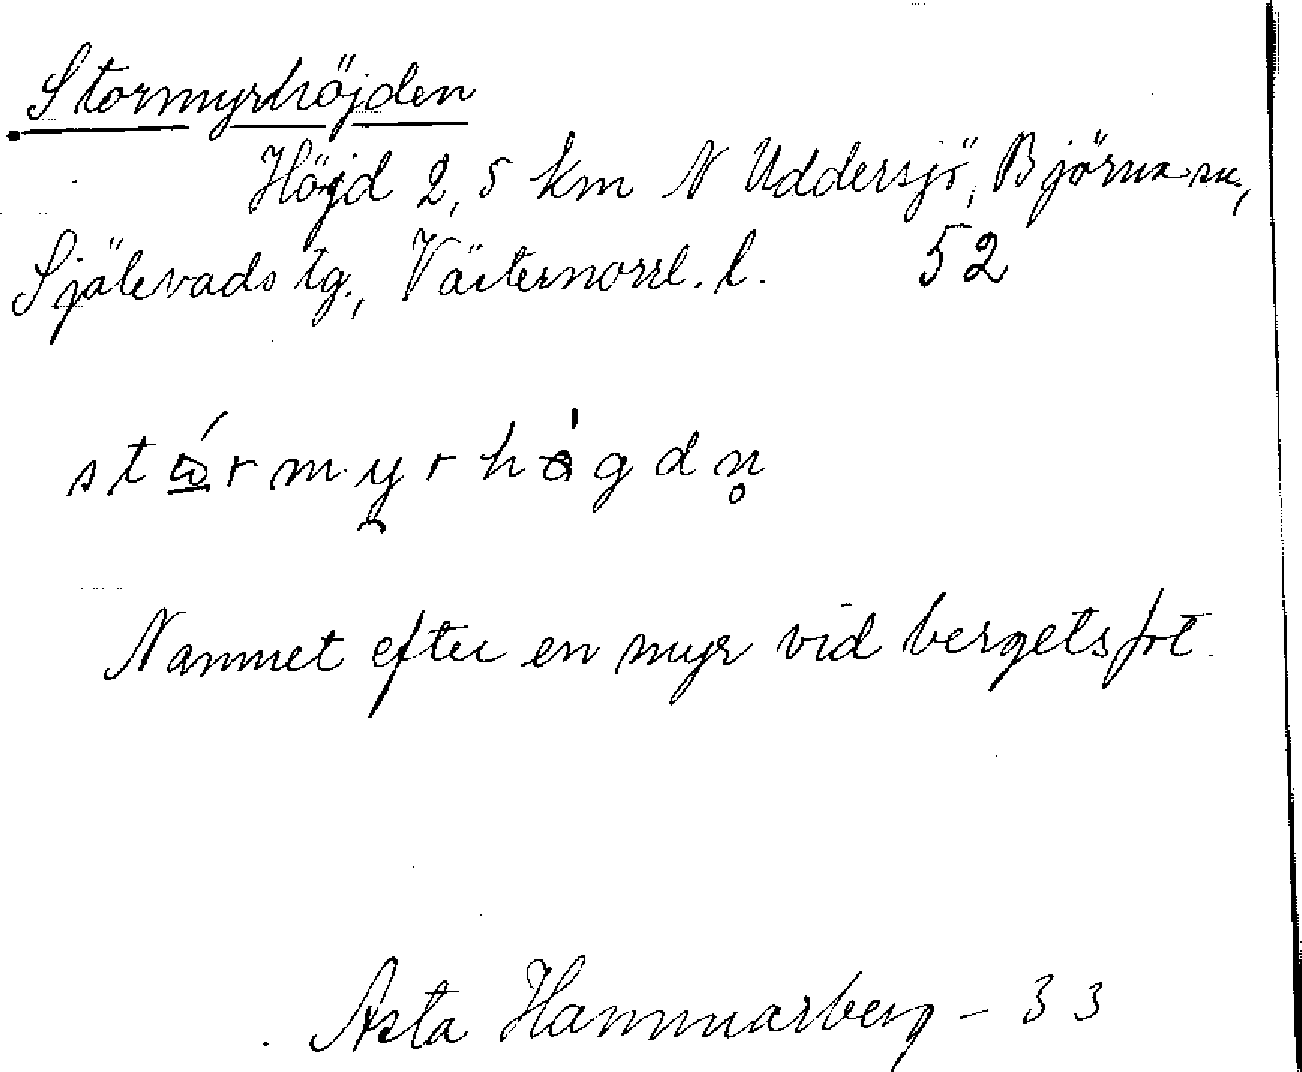 Stormyrhöjden
Höjd 2,5 km N Uddersjö, Björna sn,
Själevads tg., Västernorrl. l. 52
Namnet efter en myr vid bergets fot.
Asta Hammarberg - 33